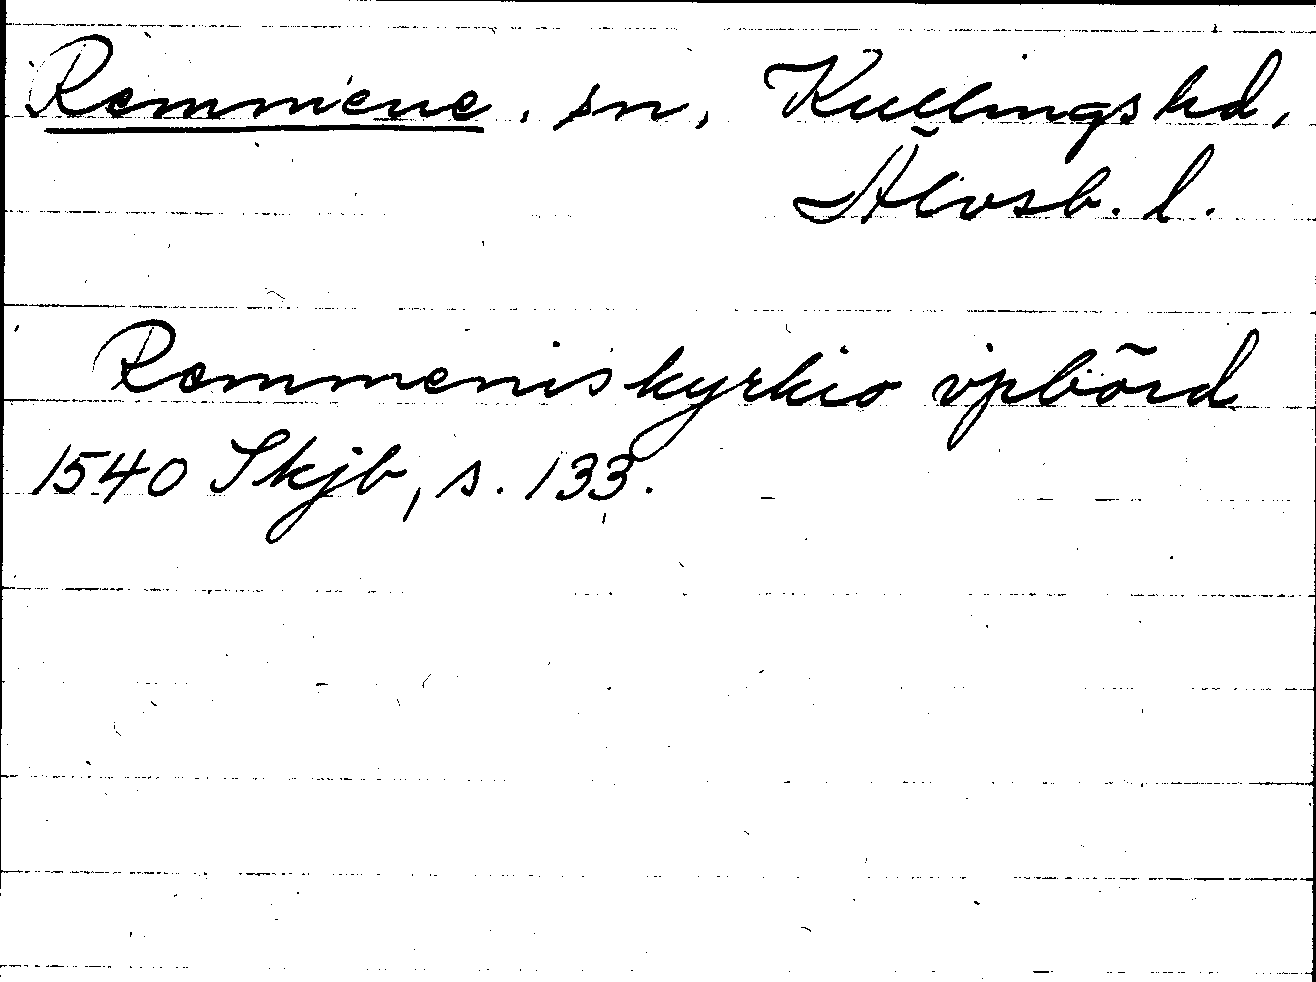 Remmene, sn, Kullings hd,
Älvsb. l.
Remmeniskyrkio vpbörd
1540 Skjb, s. 133.